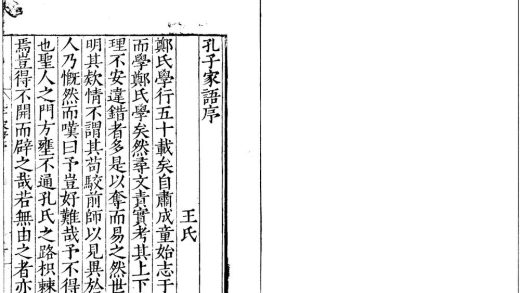 孔子家語序
王氏
鄭氏學行五十載矣自肅成童始志于
而學鄭氏學矣然尋文責實考其上下
理不安違錯者多是以奪而易之然世
明其欵情不謂其苟駮前師以見異於
人乃慨然而嘆曰予豈好難哉予不得
也聖人之門方壅不通孔氏之路枳棘
焉豈得不開而辟之哉若無由之者亦